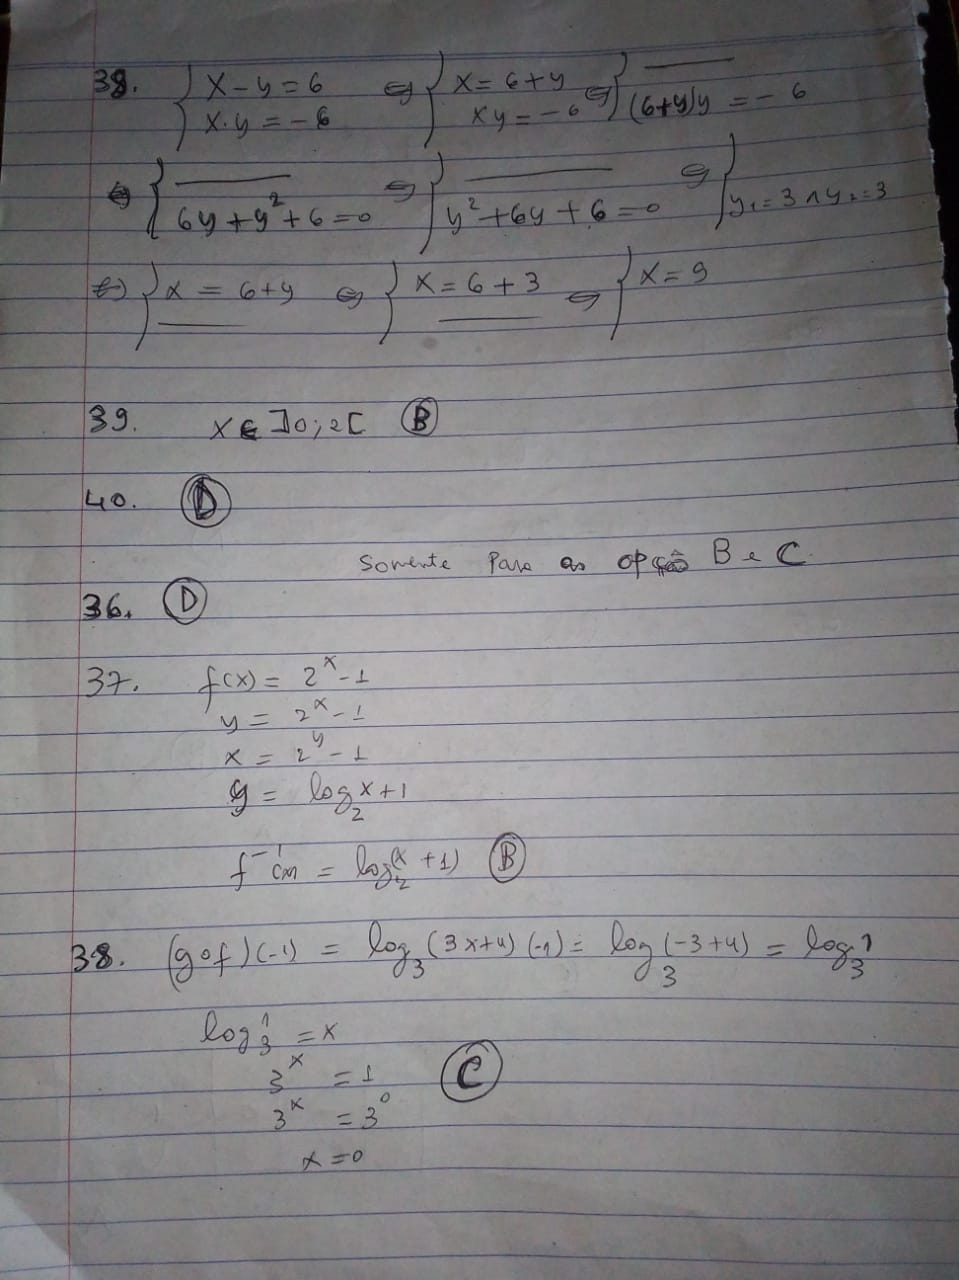 38. { x - y = 6 ⇔ { x = 6 + y ⇔ { ———
x · y = - 6 xy = - 6 (6+y)y = - 6
⇔ { ——— ⇔ { ——— ⇔ {
6y + y² + 6 = 0 y² + 6y + 6 = 0 y₁ = 3 ∧ y₂ = 3
⇔ { x = 6 + y ⇔ { x = 6 + 3 ⇔ { x = 9
39. x ∈ ]0; 2[ B
40. D
Somente Para as opção B e C
36. D
37. f(x) = 2ˣ - 1
y = 2ˣ - 1
x = 2ʸ - 1
y = log₂ x + 1
f⁻¹(x) = log₂(x + 1) B
38. (gof)(-1) = log₃(3x+4)(-1) = log₃(-3+4) = log₃ 1
log₃ 1 = x
3ˣ = 1 C
3ˣ = 3⁰
x = 0